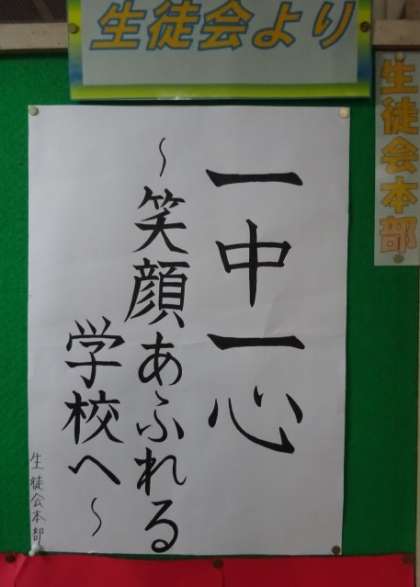 生徒会より
生徒会本部
一中一心
～笑顔あふれる
学校へ～
生徒会本部